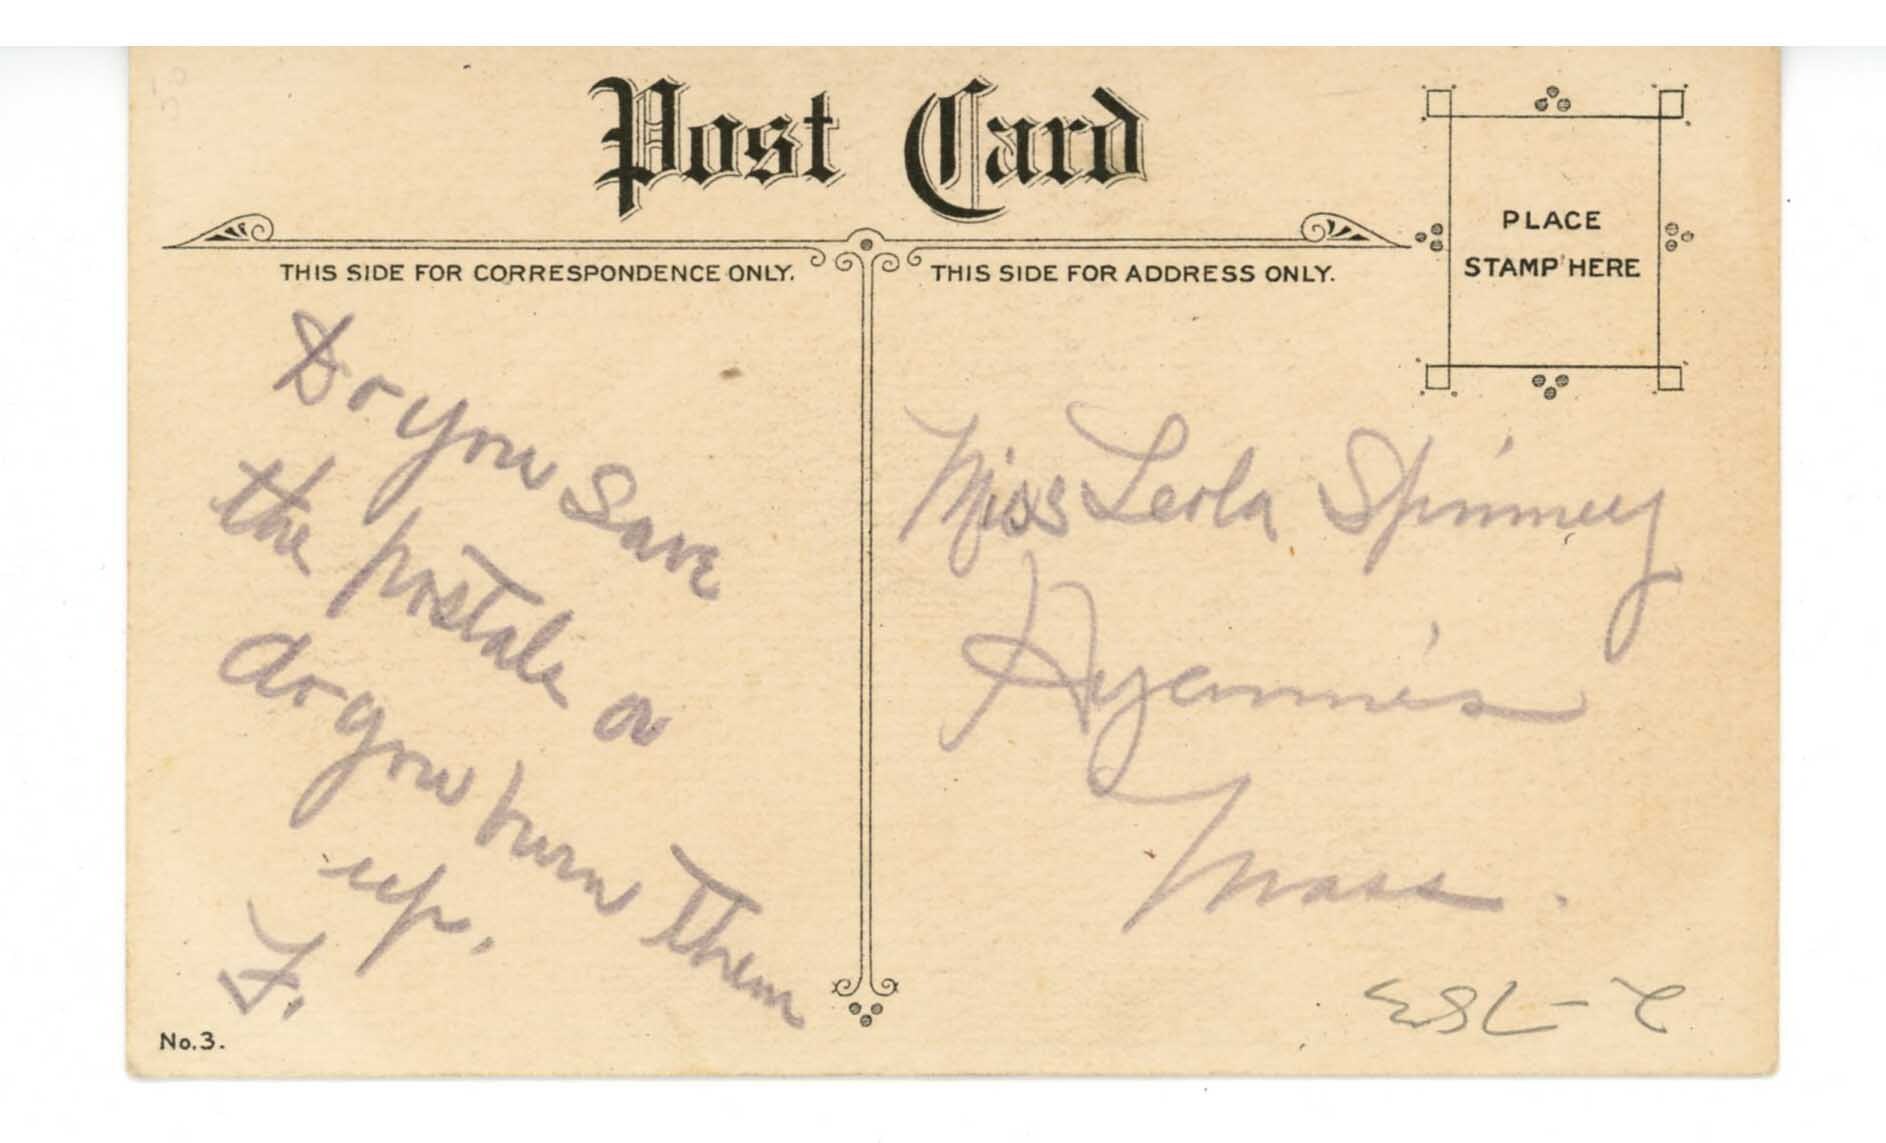 Post Card
PLACE
STAMP HERE
THIS SIDE FOR CORRESPONDENCE ONLY.
THIS SIDE FOR ADDRESS ONLY.
Do you Save
the postals or
do you burn them
up.
F.
Miss Leola Spinney
Hyannis
Mass.
No. 3.